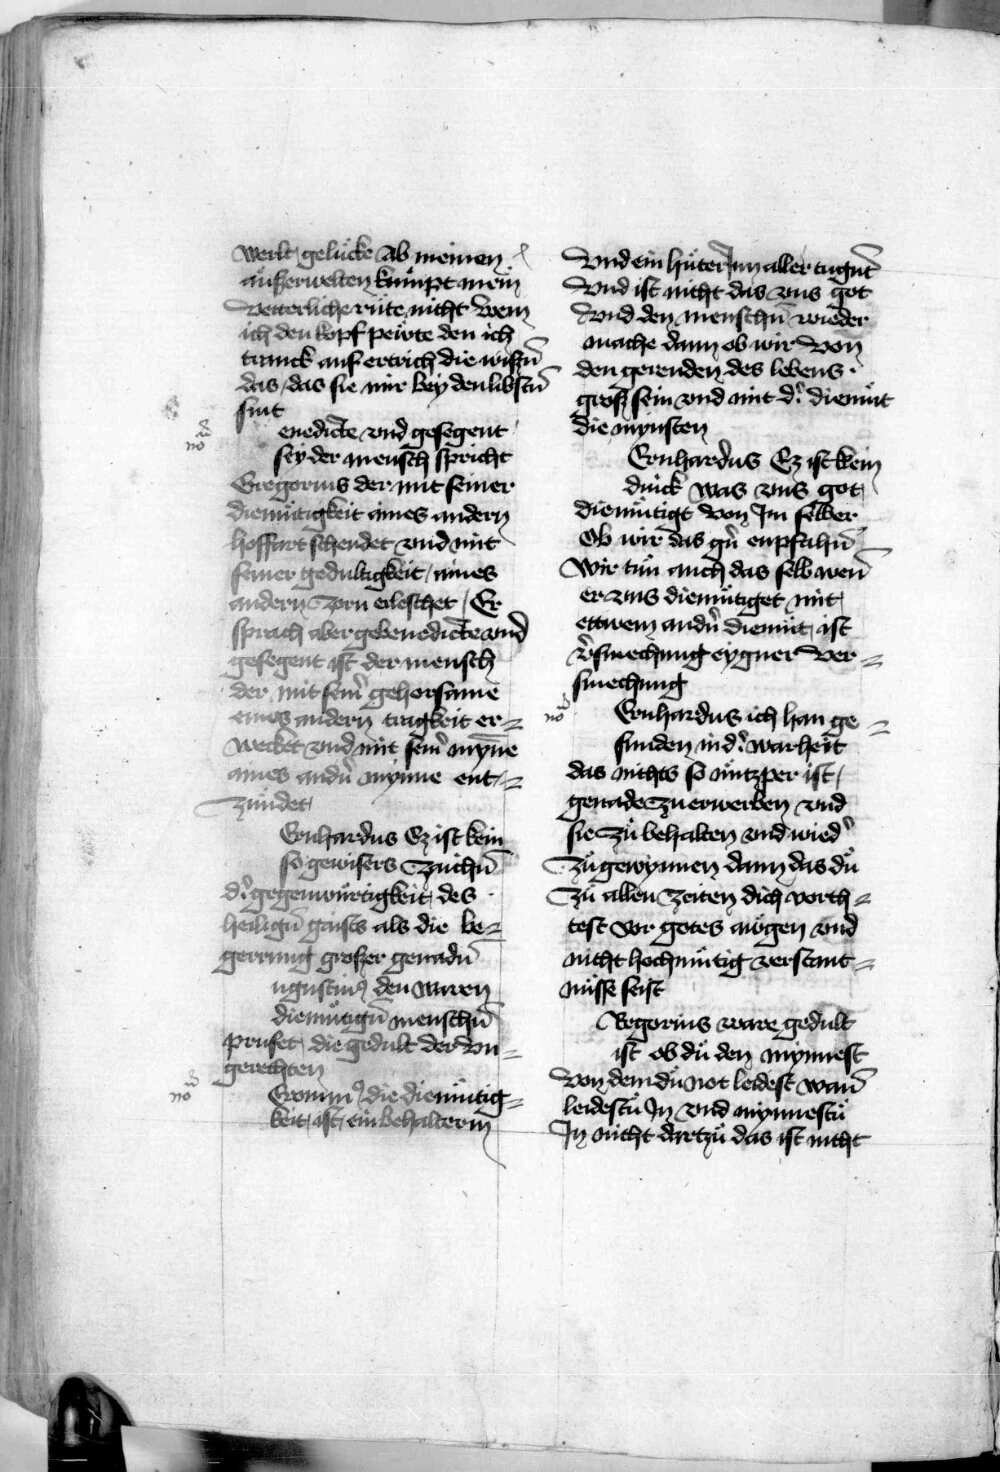 werlt gelücke Ab meinen
außerwelten kumpt mein
veterliche rüte nicht Wem
ich den kopf pewte den ich
tranck auf ertrich die wißñ
das das sie mir bey den libstñ
sint
enedicte vnd gesegent
sey der mensch spricht
Gregorius der mit seiner
diemütigkeit aines andern
hoffart schendet vnd mit
seiner gedultigkeit aines
andern Zorn erleschet Er
sprach aber gebenedicte vnd
gesegent ist der mensch
der mit seiñ gehorsame
eines andern tragkeit er=
wecket vnd mit seiñ mynne
aines andñ mynne ent=
zündet
Ernhardus Ez ist kein
so gewissers Zaichñ
d' gegenwürtigkeit des
heiligñ gaists als die be=
gerrung großer genadñ
ugustinus den waren
diemütigñ menschñ
prufet die gedult der vn=
gerechten
Eronimus die diemütig=
keit ist ein behalterin
Vnd ein hüterinn aller tugnt
Vnd ist nicht das vns got
vnd den menschñ wieder
mache dann ob wir von
den gerenden des lebens
groß sein vnd mit d' diemüt
die mynsten
Ernhardus Ez ist kein
dinck was vns got
diemütigt von Im selber
Ob wir das gñ enpfahñ
Wir tun auch das selb wen
er vns diemütiget mit
ettwem andñ diemüt ist
v'smechung eygner ver=
smechung
Ernhardus ich han ge=
funden in d' warheit
das nichts so nützper ist
genade Zu erwerben vnd
sie Zu behalten vnd wied'
Zu gewynnen dann das du
Zu allen Zeiten dich vorth=
test vor gotes augen vnd
nicht hochmütig verstant=
nüsse seist
Regorius ware gedult
ist ob du den mynnest
von dem du not leidest wañ
leidestu In vnd mynnestu
In nicht dartzu das ist nicht